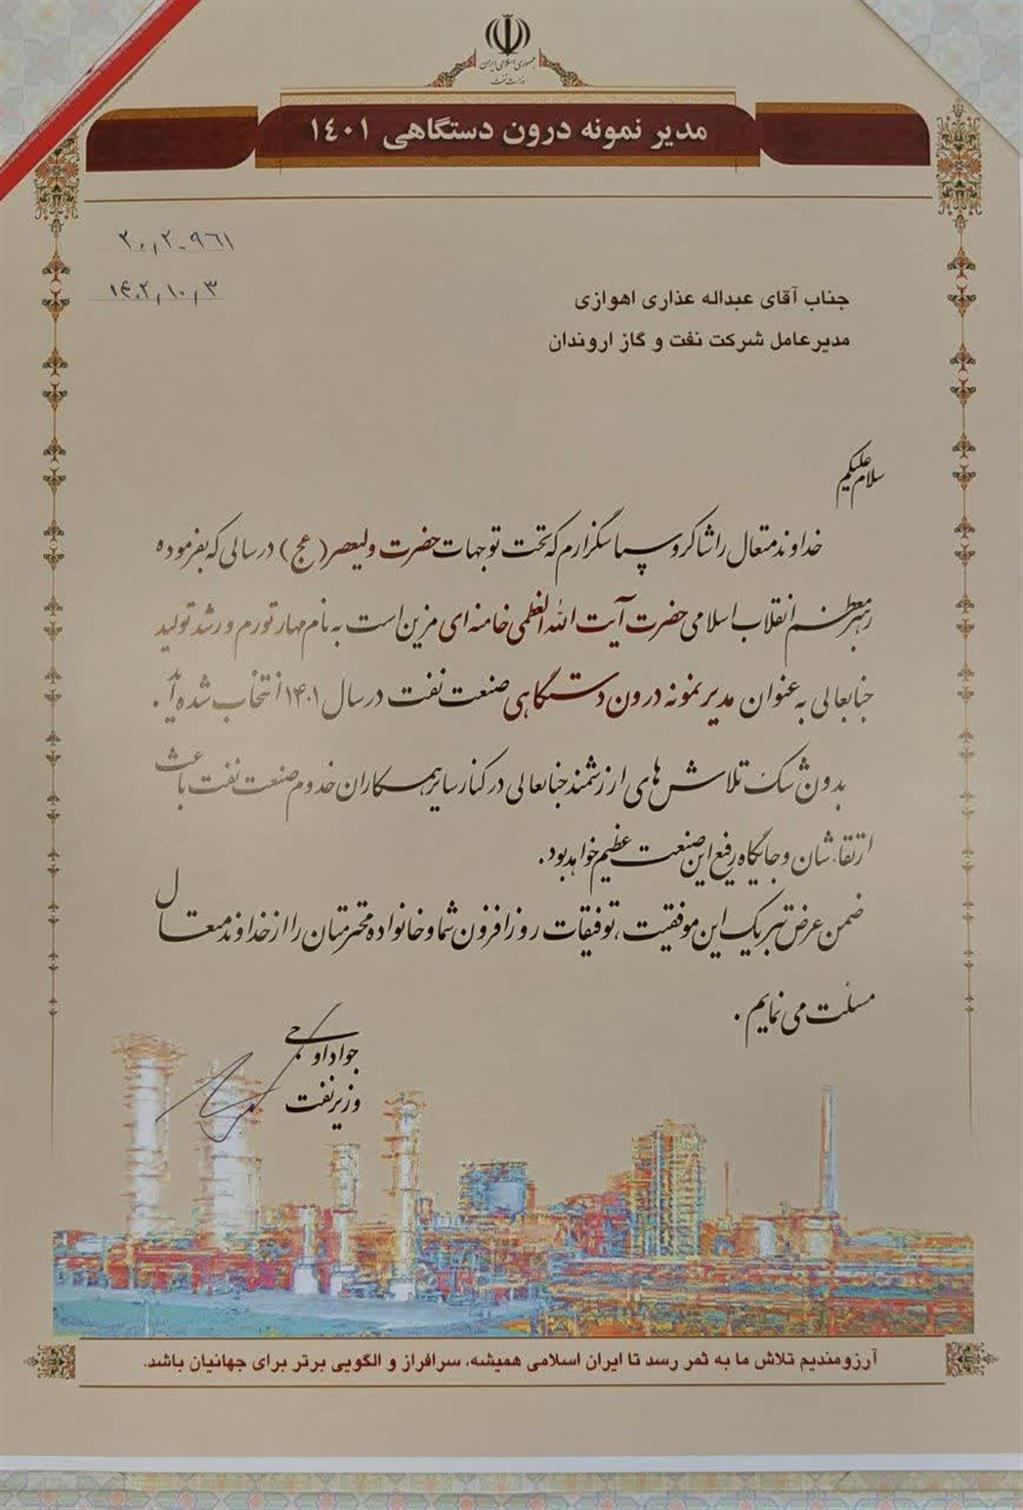 جمهوری اسلامی ایران
وزارت نفت
مدیر نمونه درون دستگاهی ۱۴۰۱
۲۰/۲-۹۶۱
۱۴۰۲/۱۰/۳
جناب آقای عبداله عذاری اهوازی
مدیرعامل شرکت نفت و گاز اروندان
سلام علیکم
خداوند متعال را شاکر و سپاسگزارم که تحت توجهات حضرت ولیعصر (عج) در سالی که بفرموده
رهبر معظم انقلاب اسلامی حضرت آیت الله العظمی خامنه ای مزین است به نام مهار تورم و رشد تولید
جنابعالی به عنوان مدیر نمونه درون دستگاهی صنعت نفت در سال ۱۴۰۱ انتخاب شده اید.
بدون شک تلاش های ارزشمند جنابعالی در کنار سایر همکاران خدوم صنعت نفت باعث
ارتقاء شان و جایگاه رفیع این صنعت عظیم خواهد بود.
ضمن عرض تبریک این موفقیت، توفیقات روزافزون شما و خانواده محترمتان را از خداوند متعال
مسئلت می نمایم.
جواد اوجی
وزیر نفت
آرزومندیم تلاش ما به ثمر رسد تا ایران اسلامی همیشه، سرافراز و الگویی برتر برای جهانیان باشد.